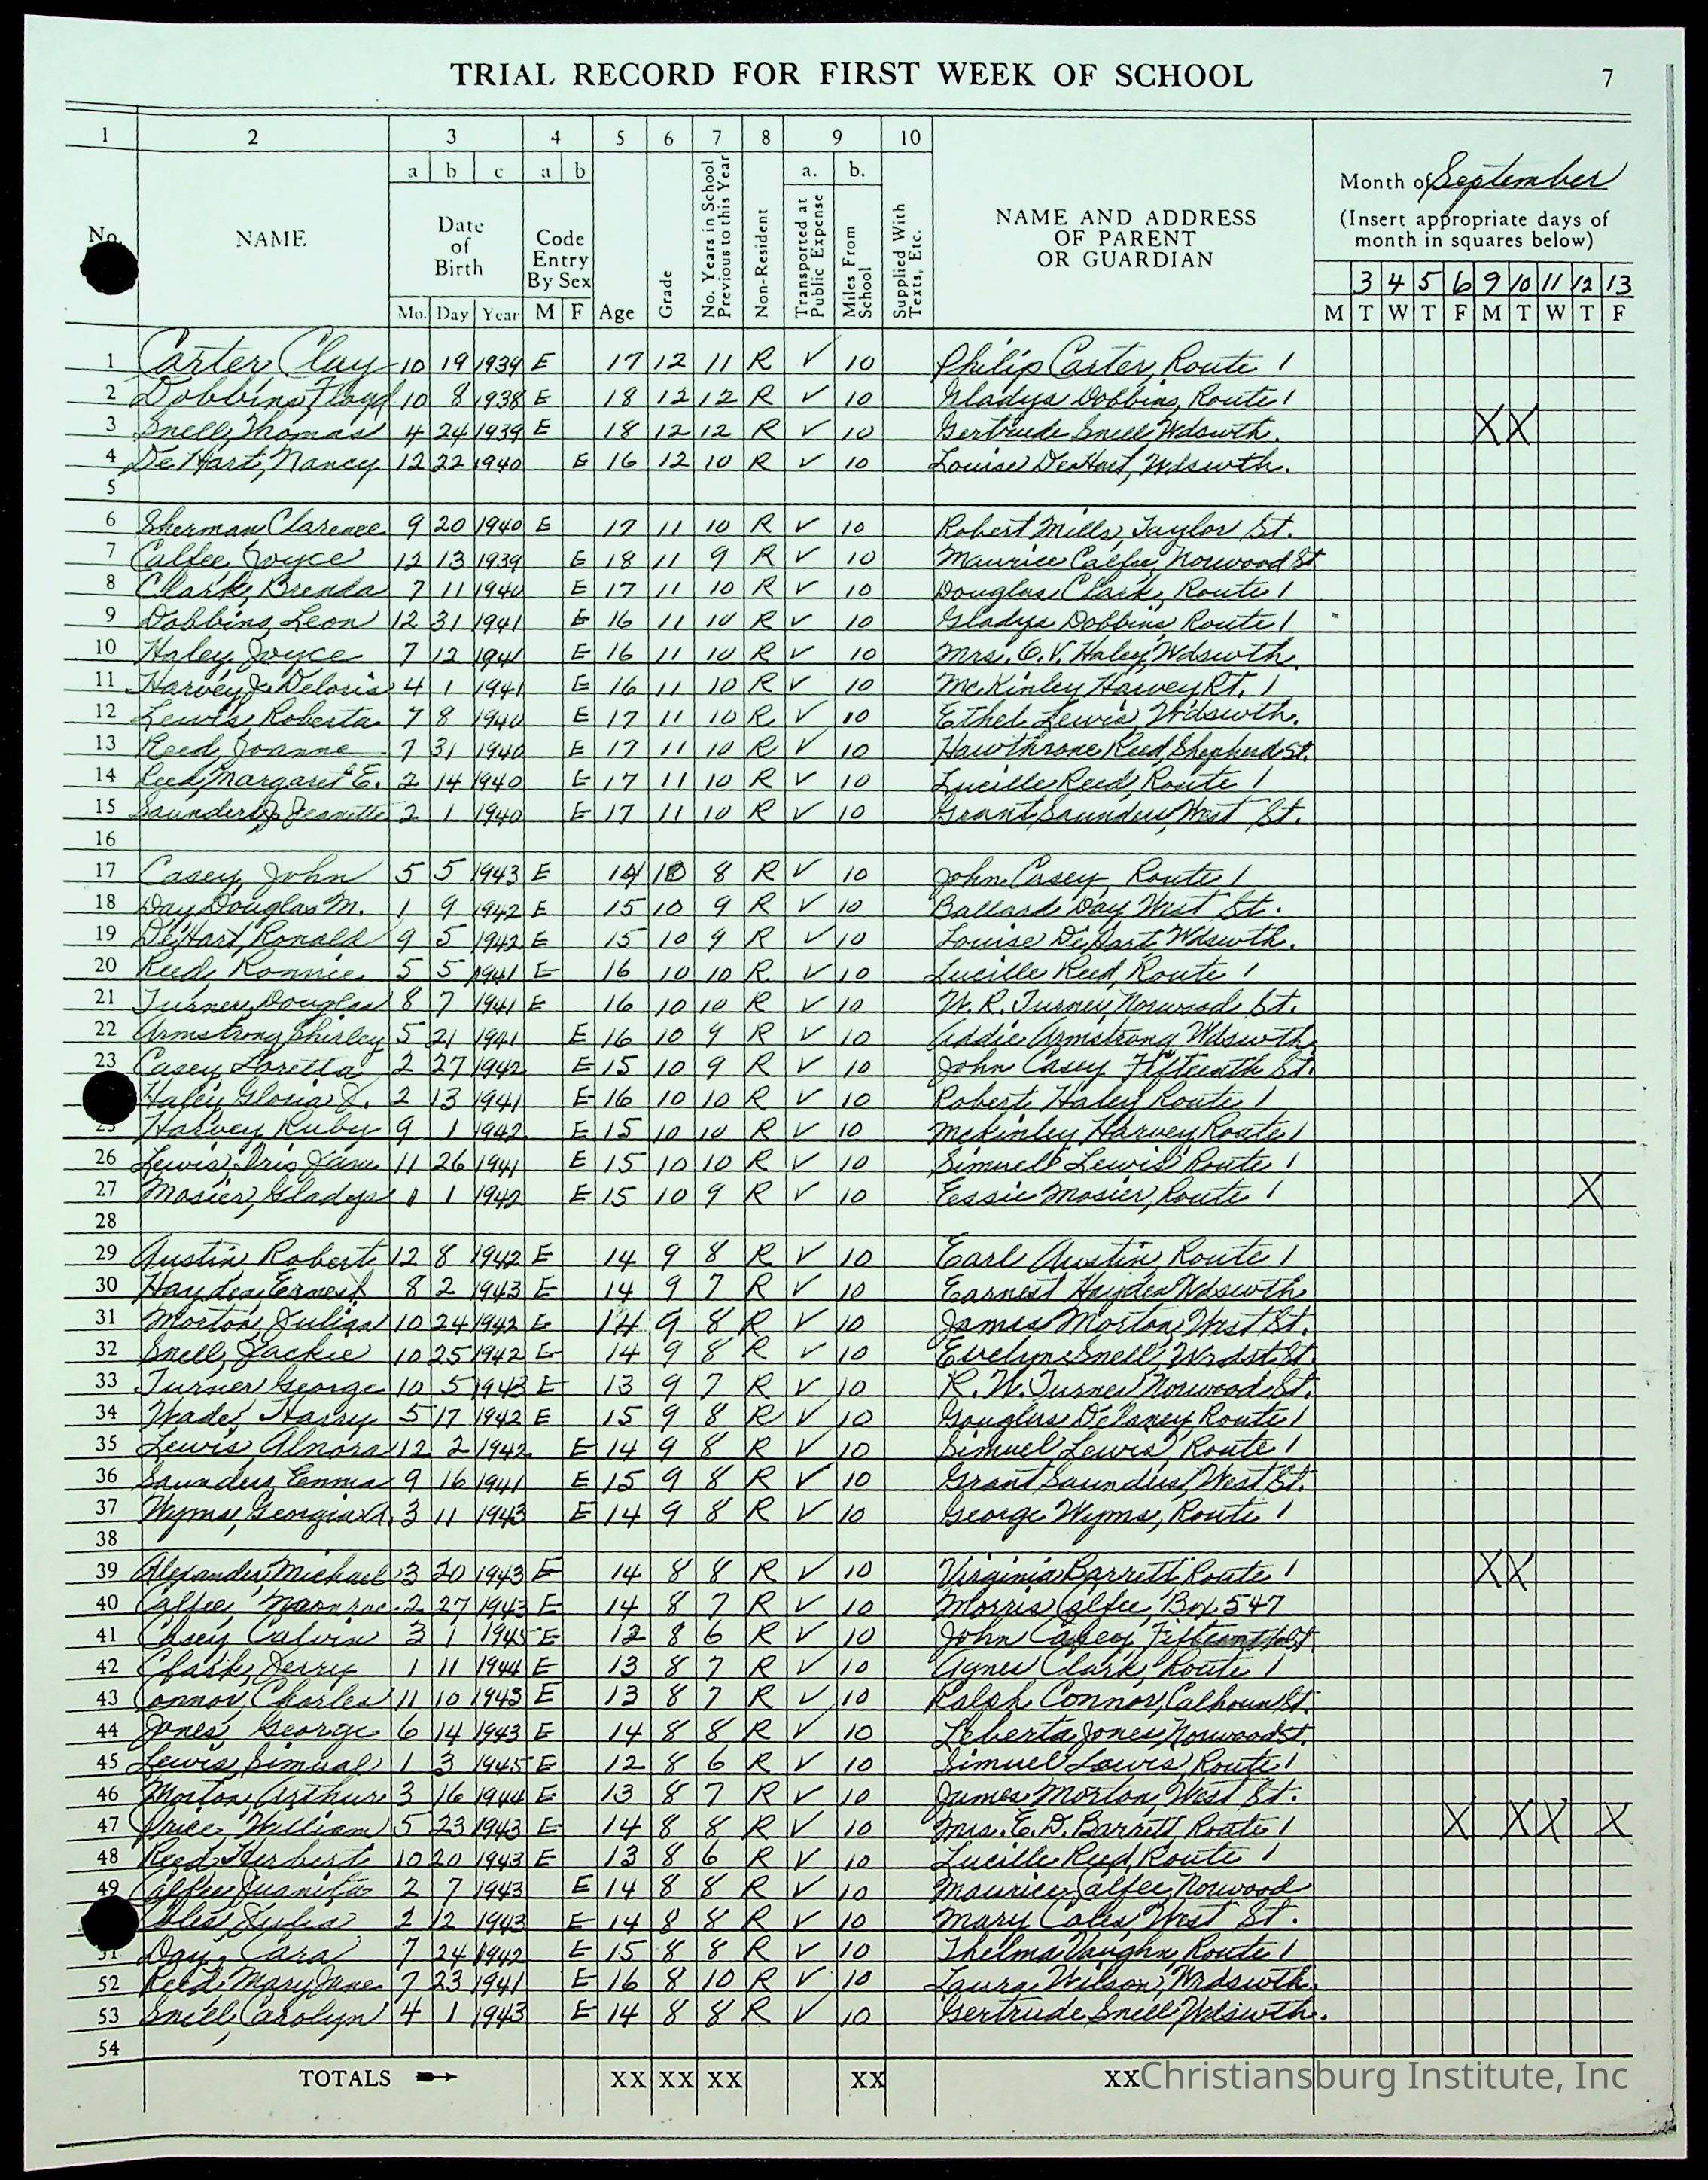 TRIAL RECORD FOR FIRST WEEK OF SCHOOL 7
1 2 3 4 5 6 7 8 9 10
a b c a b a. b.
No. NAME Date of Birth Code Entry By Sex Age Grade No. Years in School Previous to this Year Non-Resident Transported at Public Expense Miles From School Supplied With Texts, Etc. NAME AND ADDRESS OF PARENT OR GUARDIAN
Month of September
(Insert appropriate days of month in squares below)
3 4 5 6 9 10 11 12 13
Mo. Day Year M F M T W T F M T W T F
1 Carter, Clay 10 19 1939 E 17 12 11 R ✓ 10 Philip Carter, Route 1
2 Dobbins, Floyd 10 8 1938 E 18 12 12 R ✓ 10 Gladys Dobbins, Route 1
3 Snell, Thomas 4 24 1939 E 18 12 12 R ✓ 10 Gertrude Snell Wdswth. X X
4 De Hart, Nancy 12 22 1940 E 16 12 10 R ✓ 10 Louise DeHart, Wdswth.
5
6 Sherman Clarence 9 20 1940 E 17 11 10 R ✓ 10 Robert Mills, Taylor St.
7 Calfee, Joyce 12 13 1939 E 18 11 9 R ✓ 10 Maurice Calfee, Norwood St
8 Clark, Brenda 7 11 1940 E 17 11 10 R ✓ 10 Douglas Clark, Route 1
9 Dobbins, Leon 12 31 1941 E 16 11 10 R ✓ 10 Gladys Dobbins Route 1
10 Haley, Joyce 7 12 1941 E 16 11 10 R ✓ 10 Mrs. O.V. Haley, Wdswth.
11 Harvey, J. Deloris 4 1 1941 E 16 11 10 R ✓ 10 McKinley Harvey Rt. 1
12 Lewis, Roberta 7 8 1940 E 17 11 10 R ✓ 10 Ethel Lewis, Wdswth.
13 Reed, Joanne 7 31 1940 E 17 11 10 R ✓ 10 Hawthrone Reed, Shepherd St.
14 Reed, Margaret E. 2 14 1940 E 17 11 10 R ✓ 10 Lucille Reed, Route 1
15 Saunders, J. Jeanette 2 1 1940 E 17 11 10 R ✓ 10 Grant Saunders, West St.
16
17 Casey, John 5 5 1943 E 14 10 8 R ✓ 10 John Casey, Route 1
18 Day, Douglas M. 1 9 1942 E 15 10 9 R ✓ 10 Ballard Day, West St.
19 DeHart, Ronald 9 5 1942 E 15 10 9 R ✓ 10 Louise DeHart, Wdswth.
20 Reed, Ronnie 5 5 1941 E 16 10 10 R ✓ 10 Lucille Reed, Route 1
21 Turner, Douglas 8 7 1941 E 16 10 10 R ✓ 10 W. R. Turner, Norwood St.
22 Armstrong, Shirley 5 21 1941 E 16 10 9 R ✓ 10 Addie Armstrong Wdswth.
23 Casey, Loretta 2 27 1942 E 15 10 9 R ✓ 10 John Casey Fifteenth St.
Haley, Gloria J. 2 13 1941 E 16 10 10 R ✓ 10 Robert Haley Route 1
25 Harvey, Ruby 9 1 1942 E 15 10 10 R ✓ 10 McKinley Harvey Route 1
26 Lewis, Iris Jane 11 26 1941 E 15 10 10 R ✓ 10 Simuel Lewis Route 1
27 Mosier, Gladys 1 1942 E 15 10 9 R ✓ 10 Essie Mosier, Route 1 X
28
29 Austin Robert 12 8 1942 E 14 9 8 R ✓ 10 Earl Austin, Route 1
30 Hayden, Ernest 8 2 1943 E 14 9 7 R ✓ 10 Earnest Hayden Wdswth.
31 Morton, Julian 10 24 1942 E 14 9 8 R ✓ 10 James Morton, West St.
32 Snell, Jackie 10 25 1942 E 14 9 8 R ✓ 10 Evelyn Snell, St.
33 Turner George 10 5 1943 E 13 9 7 R ✓ 10 R. W. Turner Norwood St.
34 Wade, Harry 5 17 1942 E 15 9 8 R ✓ 10 Douglas Delaney, Route 1
35 Lewis, Almora 12 2 1942 E 14 9 8 R ✓ 10 Simuel Lewis, Route 1
36 Saunders, Emma 9 16 1941 E 15 9 8 R ✓ 10 Grant Saunders, West St.
37 Wyms, Georgia A. 3 11 1943 E 14 9 8 R ✓ 10 George Wyms, Route 1
38
39 Alexander, Michael 3 20 1943 E 14 8 8 R ✓ 10 Virginia Barrett Route 1 X X
40 Calfee, 2 27 1943 E 14 8 7 R ✓ 10 Morris Calfee, Box 547
41 Casey, Calvin 3 1 1945 E 12 8 6 R ✓ 10 John Casey, Fifteenth St
42 Clark, Jerry 1 11 1944 E 13 8 7 R ✓ 10 Agnes Clark, Route 1
43 Connor, Charles 11 10 1943 E 13 8 7 R ✓ 10 Ralph Connor, Calhoun St.
44 Jones, George 6 14 1943 E 14 8 8 R ✓ 10 Leberta Jones, Norwood St.
45 Lewis, Simual 1 3 1945 E 12 8 6 R ✓ 10 Simuel Lewis Route 1
46 Morton, Arthur 3 16 1944 E 13 8 7 R ✓ 10 James Morton, West St.
47 Price, William 5 23 1943 E 14 8 8 R ✓ 10 Mrs. E. D. Barrett, Route 1 X X X X
48 Reed, Herbert 10 20 1943 E 13 8 6 R ✓ 10 Lucille Reed, Route 1
49 Calfee, Juanita 2 7 1943 E 14 8 8 R ✓ 10 Maurice Calfee, Norwood
Coles, Julia 2 12 1943 E 14 8 8 R ✓ 10 Mary Coles, West St.
51 Day, Cara 7 24 1942 E 15 8 8 R ✓ 10 Thelma Vaughn, Route 1
52 Reed, Mary Jane 7 23 1941 E 16 8 10 R ✓ 10 Laura Wilson, Wrdswth.
53 Snell, Carolyn 4 1 1943 E 14 8 8 R ✓ 10 Gertrude Snell, Wdswth.
54
TOTALS XX XX XX XX XX
Christiansburg Institute, Inc